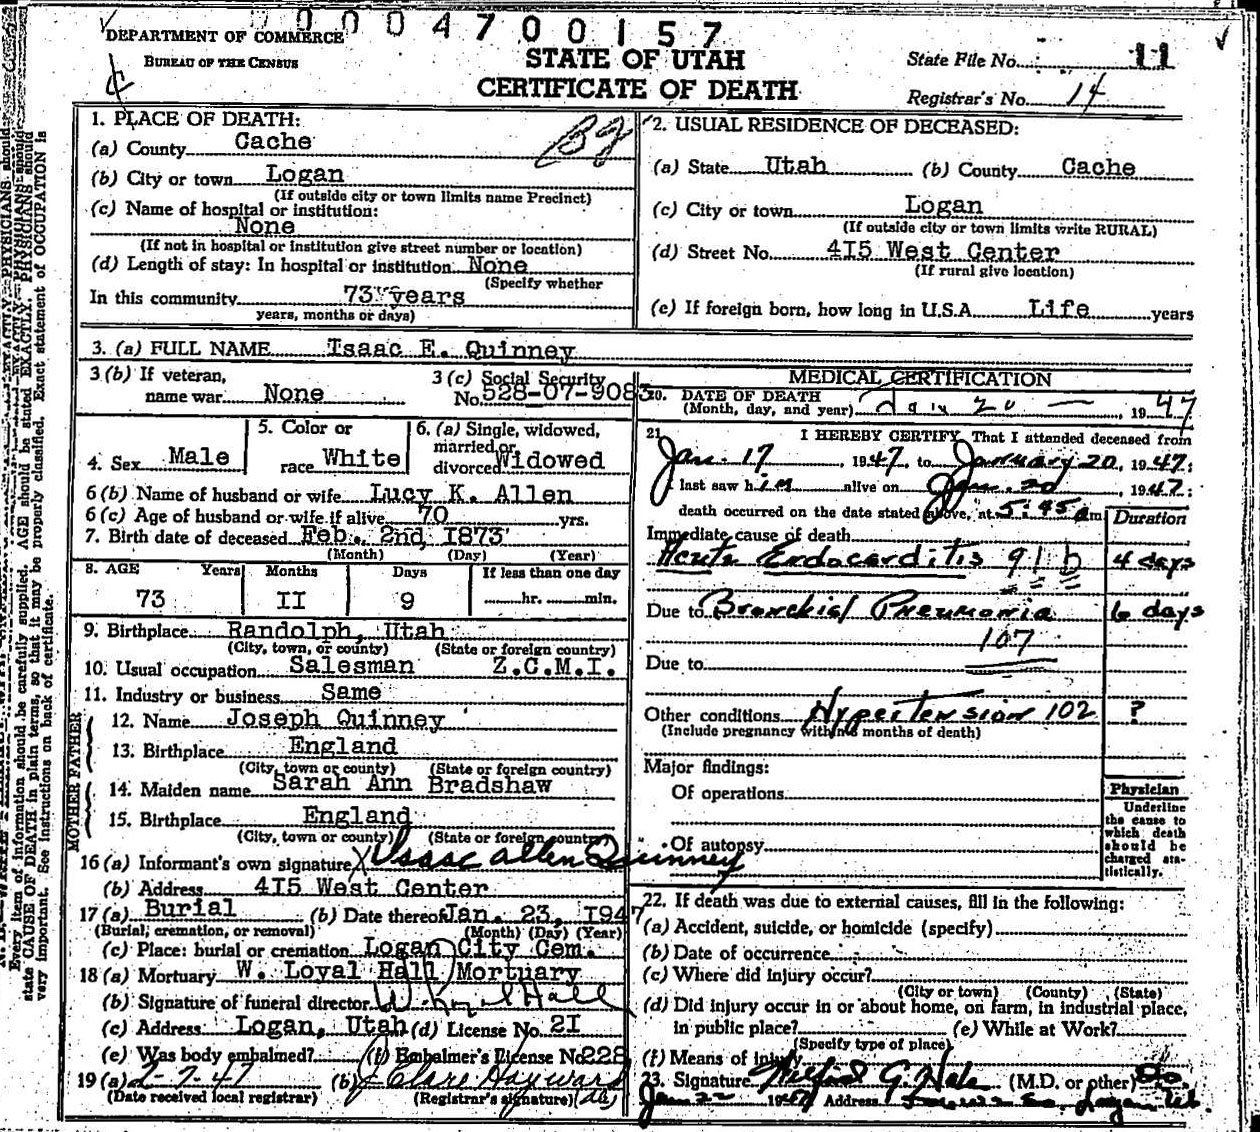 0004700157
DEPARTMENT OF COMMERCE
BUREAU OF THE CENSUS
STATE OF UTAH
CERTIFICATE OF DEATH
State File No. 11
Registrar's No. 14
1. PLACE OF DEATH:
(a) County Cache
(b) City or town Logan
(If outside city or town limits name Precinct)
(c) Name of hospital or institution:
None
(If not in hospital or institution give street number or location)
(d) Length of stay: In hospital or institution None
(Specify whether
In this community 73 years
years, months or days)
2. USUAL RESIDENCE OF DECEASED:
(a) State Utah (b) County Cache
(c) City or town Logan
(If outside city or town limits write RURAL)
(d) Street No. 4I5 West Center
(If rural give location)
(e) If foreign born, how long in U.S.A. Life years
3. (a) FULL NAME Isaac E. Quinney
3 (b) If veteran, name war None
3 (c) Social Security No. 528-07-9083
4. Sex Male
5. Color or race White
6. (a) Single, widowed, married or divorced Widowed
6 (b) Name of husband or wife Lucy K. Allen
6 (c) Age of husband or wife if alive 70 yrs.
7. Birth date of deceased Feb. 2nd, I873
(Month) (Day) (Year)
8. AGE Years Months Days If less than one day
73 II 9 hr. min.
9. Birthplace Randolph, Utah
(City, town, or county) (State or foreign country)
10. Usual occupation Salesman Z.C.M.I.
11. Industry or business Same
FATHER
12. Name Joseph Quinney
13. Birthplace England
(City, town or county) (State or foreign country)
MOTHER
14. Maiden name Sarah Ann Bradshaw
15. Birthplace England
(City, town or county) (State or foreign country)
16 (a) Informant's own signature X Isaac Allen Quinney
(b) Address 4I5 West Center
17 (a) Burial (b) Date thereof Jan. 23, I947
(Burial, cremation, or removal) (Month) (Day) (Year)
(c) Place: burial or cremation Logan City Cem.
18 (a) Mortuary W. Loyal Hall Mortuary
(b) Signature of funeral director W. Loyal Hall
(c) Address Logan, Utah (d) License No. 2I
(e) Was body embalmed? (f) Embalmer's License No. 228
19 (a) 2-7-47 (b) J Clare Hayward
(Date received local registrar) (Registrar's signature)
MEDICAL CERTIFICATION
20. DATE OF DEATH
(Month, day, and year) Jan 20 — , 1947
21. I HEREBY CERTIFY, That I attended deceased from
Jan. 17, 1947, to January 20, 1947;
I last saw him alive on Jan. 20 1947;
death occurred on the date stated above, at 5:45 am
Duration
Immediate cause of death
Acute Endocarditis 91 b 4 days
Due to Bronchial Pneumonia 6 days
107
Due to
Other conditions Hypertension 102 ?
(Include pregnancy within 3 months of death)
Major findings:
Of operations
Of autopsy
Physician
Underline
the cause to
which death
should be
charged sta-
tistically.
22. If death was due to external causes, fill in the following:
(a) Accident, suicide, or homicide (specify)
(b) Date of occurrence
(c) Where did injury occur?
(City or town) (County) (State)
(d) Did injury occur in or about home, on farm, in industrial place,
in public place? (e) While at Work?
(Specify type of place)
(f) Means of injury
23. Signature (M.D. or other)
Jan 22 1947 Address Logan Ut.
Every item of information should be carefully supplied. AGE should be stated EXACTLY. PHYSICIANS should
state CAUSE OF DEATH in plain terms, so that it may be properly classified. Exact statement of OCCUPATION is
very important. See instructions on back of certificate.